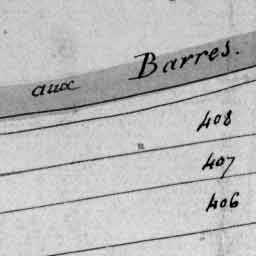 aux Barres.
408
407
406